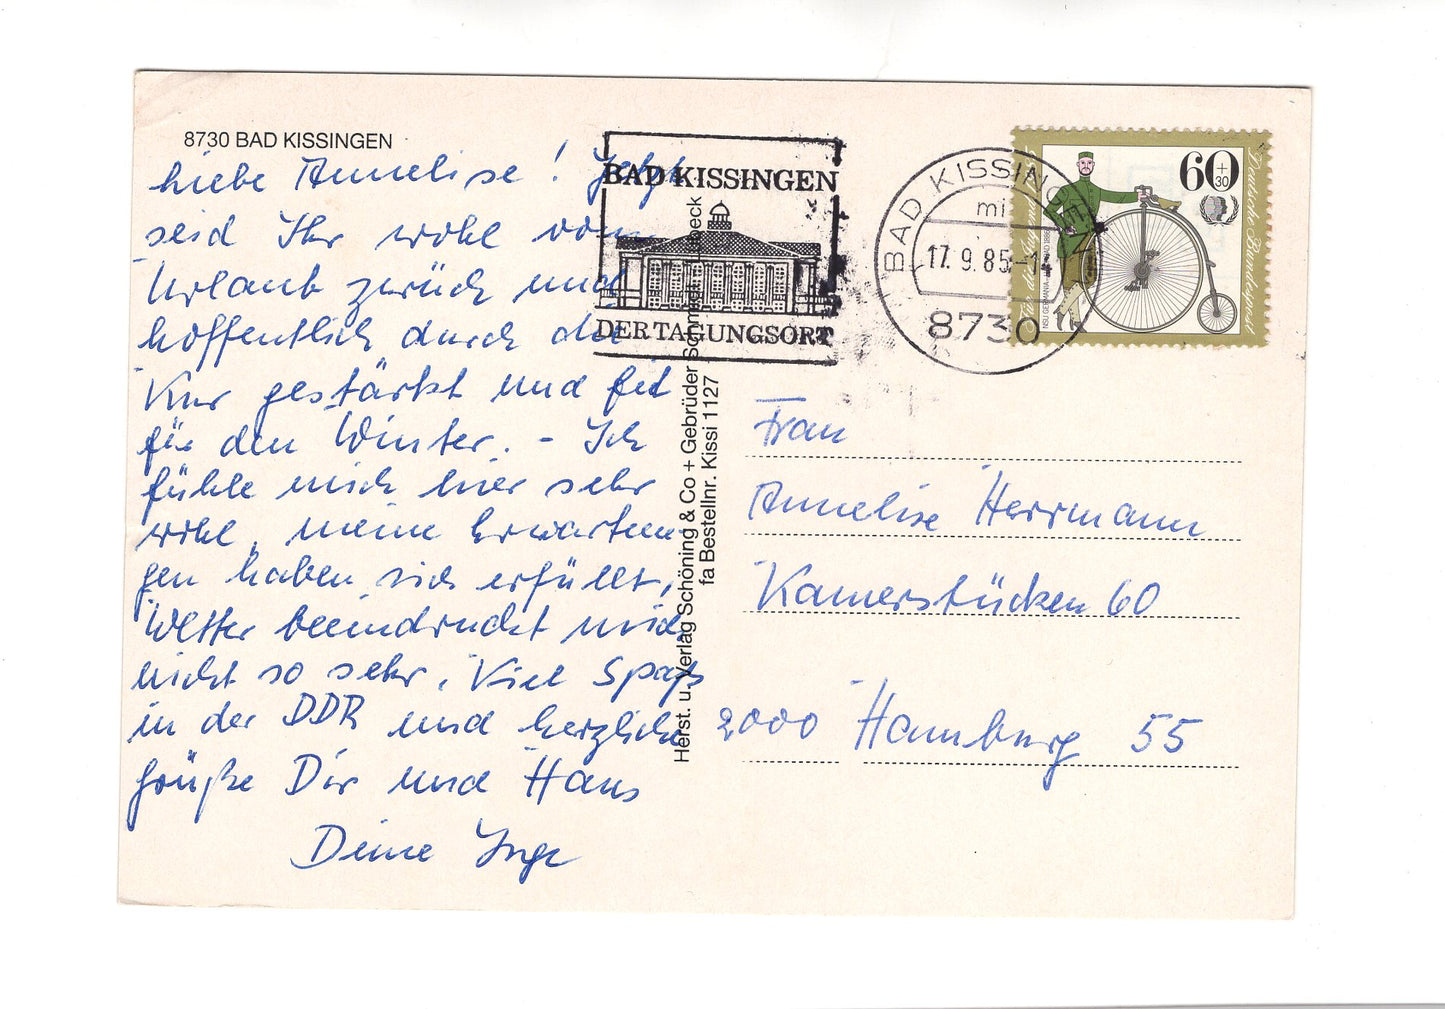 8730 BAD KISSINGEN
Liebe Annelise! Jetzt
seid Ihr wohl vom
Urlaub zurück und
hoffentlich durch die
Kur gestärkt und fit
für den Winter. - Ich
fühle mich hier sehr
wohl, meine Erwartun-
gen haben sich erfüllt,
Wetter beeindruckt mich
nicht so sehr. Viel Spaß
in der DDR und herzliche
Grüße Dir und Hans
Deine Inge
Herst. u. Verlag Schöning & Co + Gebrüder Schmidt, Lübeck
fa Bestellnr. Kissi 1127
BAD KISSINGEN
DER TAGUNGSORT
BAD KISSINGEN
17.9.85-1
8730
60
+
30
Deutsche Bundespost
Für die Jugend
NSU GERMANIA
Frau
Annelise Herrmann
Kamerstücken 60
2000 Hamburg 55